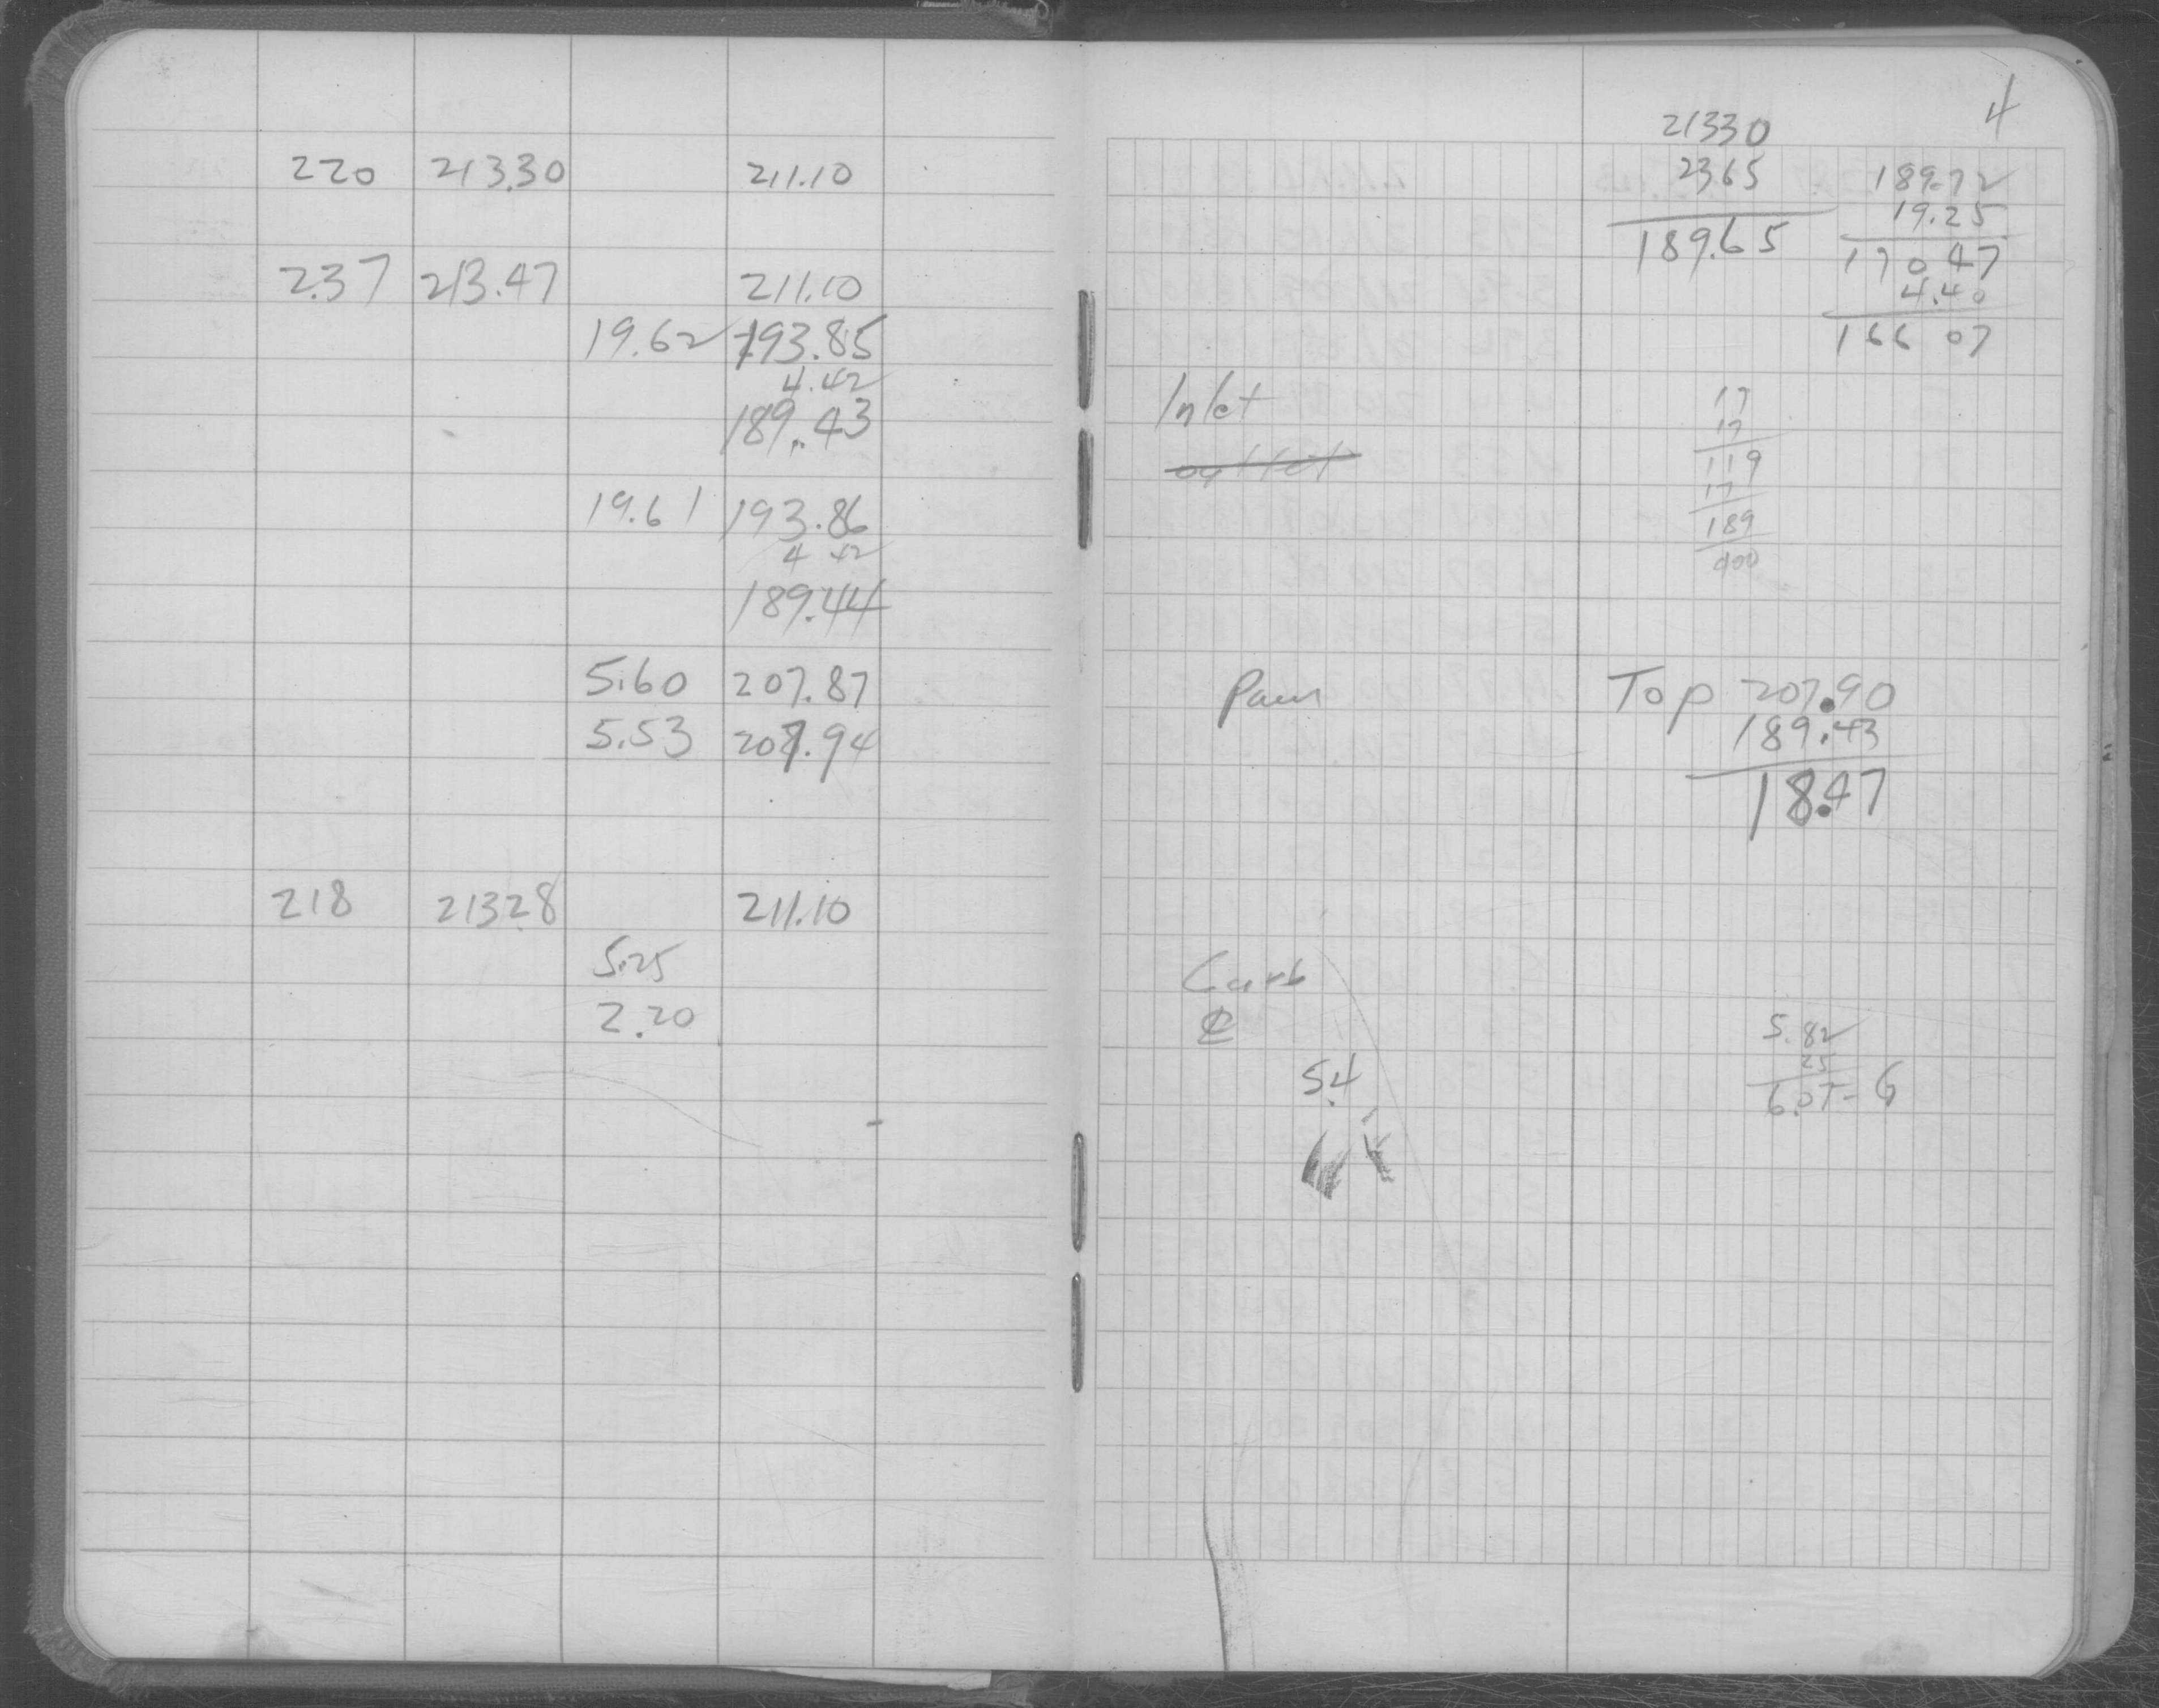 220 213.30 211.10
2.37 213.47 211.10
19.62 193.85
4.42
189.43
19.61 193.86
4 42
189.44
5.60 207.87
5.53 207.94
218 213.28 211.10
5.25
2.20
4
21330
2365
189.65
189.72
19.25
170 47
4.40
166 07
Inlet
outlet
17
17
119
17
189
400
Top 207.90
189.43
18.47
Curb
℄
5.4
5.82
25
6.07 - 6